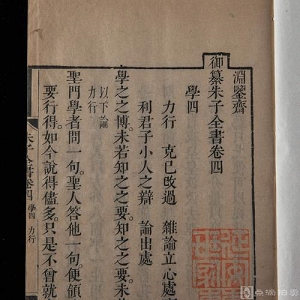 淵鑒齋
御纂朱子全書卷四
學四
力行　克己改過　雜論立心處
利君子小人之辯　論出處
學之之博，未若知之之要，知之之要，未
以下論
力行
聖門學者問一句，聖人答他一句，便領
要行得，如今說得儘多，只是不曾就
朱子全書卷四　學四　力行